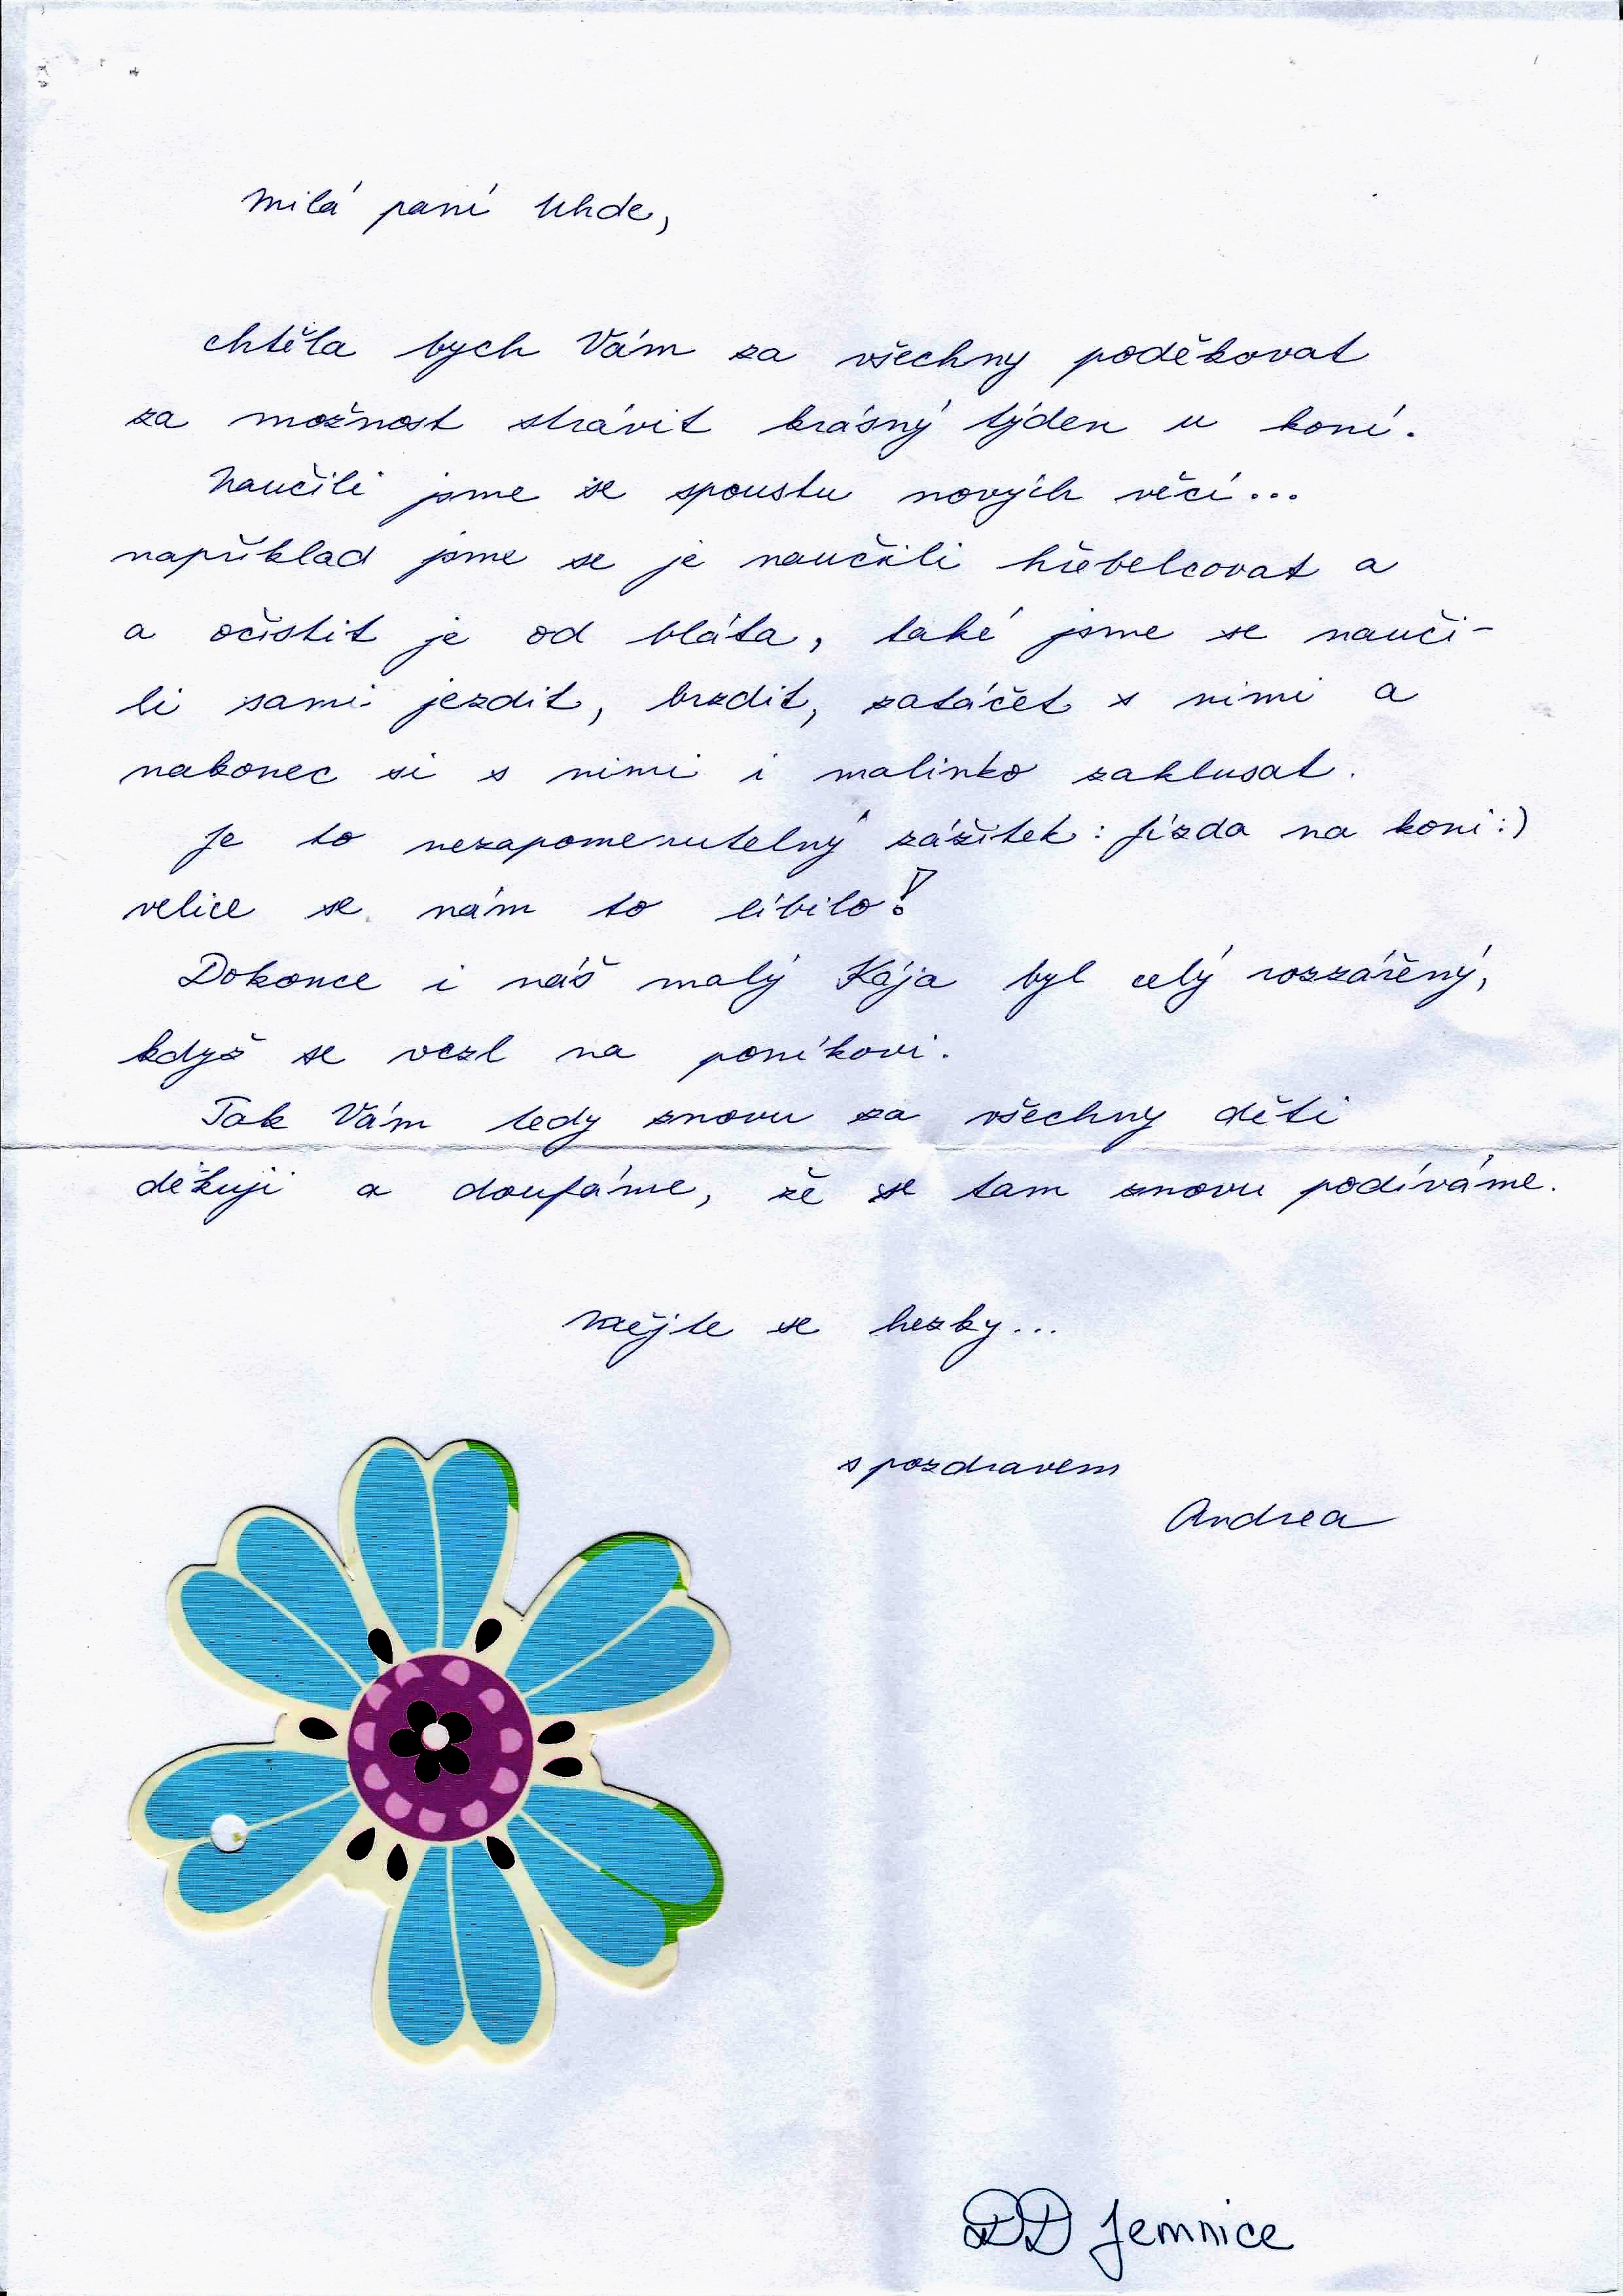 Milá paní Uhde,
chtěla bych Vám za všechny poděkovat
za možnost strávit krásný týden u koní.
Naučili jsme se spoustu nových věcí...
například jsme se je naučili hřebelcovat a
a očistit je od bláta, také jsme se nauči-
li sami jezdit, brzdit, zatáčet s nimi a
nakonec si s nimi i malinko zaklusat.
Je to nezapomenutelný zážitek: Jízda na koni:)
velice se nám to líbilo!
Dokonce i náš malý Kája byl celý rozzářený,
když se vezl na poníkovi.
Tak Vám tedy znovu za všechny děti
děkuji a doufáme, že se tam znovu podíváme.
Mějte se hezky...
s pozdravem
Andrea
DD Jemnice